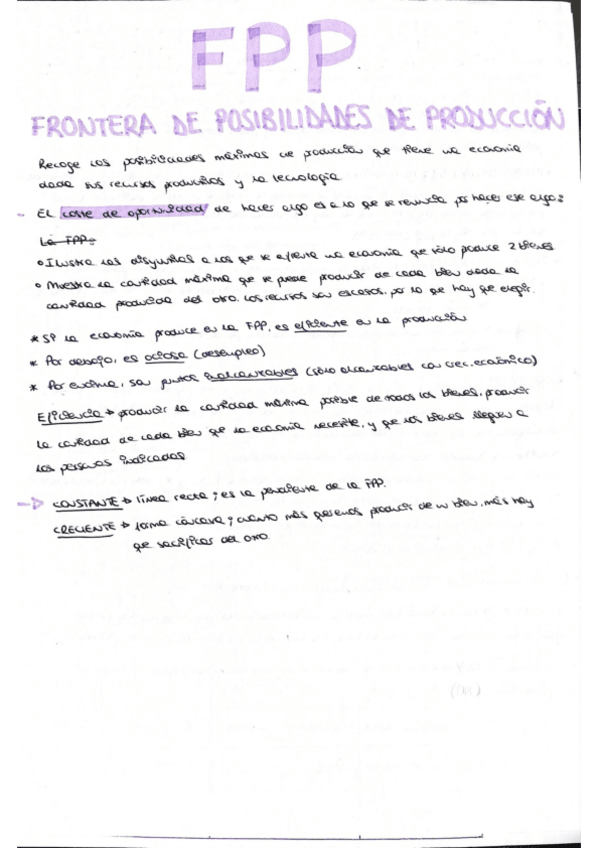 FPP
FRONTERA DE POSIBILIDADES DE PRODUCCIÓN
Recoge las posibilidades máximas de producción que tiene una economía
dada sus recursos productivos y la tecnología
- El coste de oportunidad de hacer algo es a lo que se renuncia por hacer ese algo
La FPP:
• Ilustra las disyuntivas a las que se enfrenta una economía que sólo produce 2 bienes
• Muestra la cantidad máxima que se puede producir de cada bien dada la
cantidad producida del otro. Los recursos son escasos, por lo que hay que elegir.
* Si la economía produce en la FPP, es eficiente en la producción
* Por debajo, es ociosa (desempleo)
* Por encima, son puntos inalcanzables (sólo alcanzables con crec. económico)
Eficiencia → producir la cantidad máxima posible de todos los bienes, producir
la cantidad de cada bien que la economía necesite, y que los bienes lleguen a
las personas indicadas
→ CONSTANTE → línea recta; es la pendiente de la FPP.
CRECIENTE → forma cóncava; cuanto más queremos producir de un bien, más hay
que sacrificar del otro